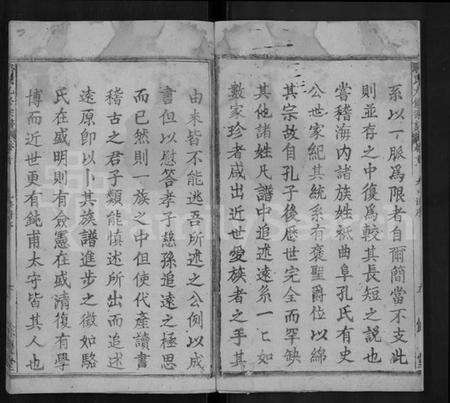 系以一脈爲限者自爾簡當不支此
則並存之中復爲較其長短之說也
嘗稽海内諸族姓祗曲阜孔氏有史
公世家紀其統系有褒聖爵位以綿
其宗故自孔子後歷世完全而罕缺
其他諸姓凡譜中追述遠系一一如
數家珍者咸出近世愛族者之手其
由来皆不能逃吾所述之公例以成
書但以慰答孝子慈孫追遠之極思
而已然則一族之中但使代產讀書
稽古之君子類能慎述所出而追述
遠原卽以卜其族譜進步之徵如駱
氏在盛明則有僉憲在盛清復有學
博而近世更有鈍甫太守皆其人也